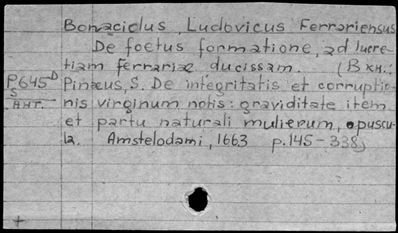 Bonaciolus, Ludovicus Ferrariensus
De foetus formatione, ad lucre
tiam ferrariæ ducissam. (В кн.:
P645D Pinæus, S. De integritatis et corruptio-
S
Ант. nis virginum notis: graviditate item
et partu naturali mulierum, opuscu-
la. Amstelodami, 1663 p. 145-338)
+